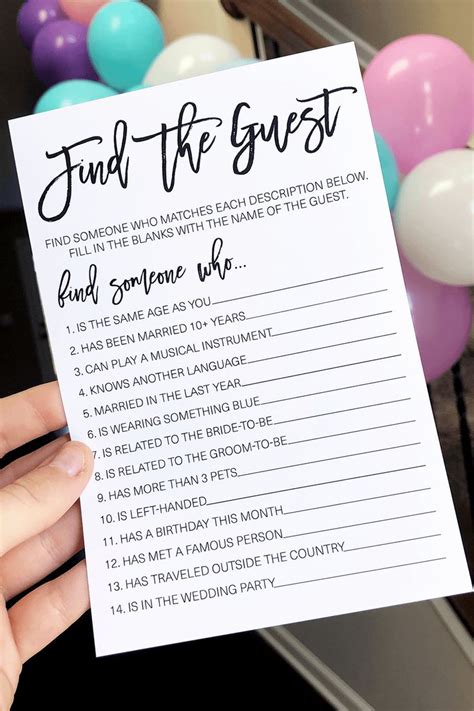 Find The Guest
FIND SOMEONE WHO MATCHES EACH DESCRIPTION BELOW.
FILL IN THE BLANKS WITH THE NAME OF THE GUEST.
find someone who...
1. IS THE SAME AGE AS YOU
2. HAS BEEN MARRIED 10+ YEARS
3. CAN PLAY A MUSICAL INSTRUMENT
4. KNOWS ANOTHER LANGUAGE
5. MARRIED IN THE LAST YEAR
6. IS WEARING SOMETHING BLUE
7. IS RELATED TO THE BRIDE-TO-BE
8. IS RELATED TO THE GROOM-TO-BE
9. HAS MORE THAN 3 PETS
10. IS LEFT-HANDED
11. HAS A BIRTHDAY THIS MONTH
12. HAS MET A FAMOUS PERSON
13. HAS TRAVELED OUTSIDE THE COUNTRY
14. IS IN THE WEDDING PARTY